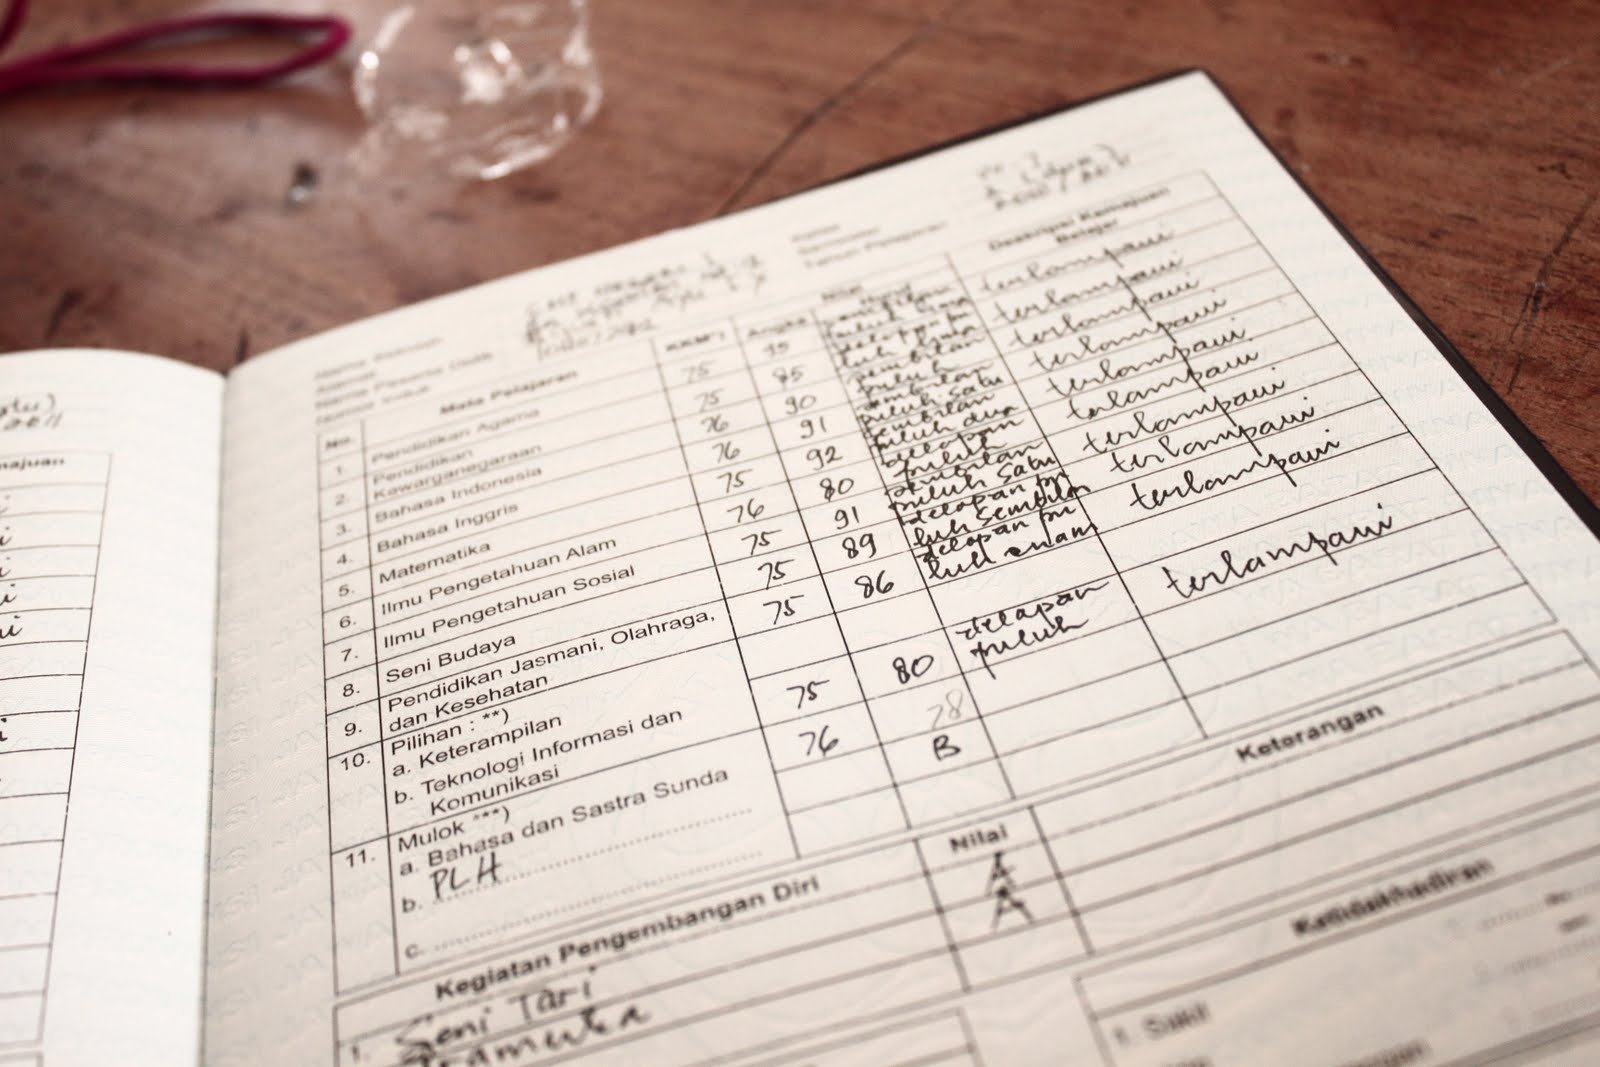 Tahun Pelajaran
No. Mata Pelajaran KKM*) Nilai Deskripsi Kemajuan
Angka Huruf Belajar
1. Pendidikan Agama 75 95 terlampaui
2. Pendidikan 75 85 delapan pu terlampaui
Kewarganegaraan luh lima
3. Bahasa Indonesia 76 90 sembilan terlampaui
puluh
4. Bahasa Inggris 76 91 sembilan terlampaui
puluh satu
5. Matematika 75 92 sembilan terlampaui
puluh dua
6. Ilmu Pengetahuan Alam 76 80 delapan terlampaui
puluh
7. Ilmu Pengetahuan Sosial 75 91 sembilan terlampaui
puluh satu
8. Seni Budaya 75 89 delapan pu terlampaui
luh sembilan
9. Pendidikan Jasmani, Olahraga, 75 86 delapan pu terlampaui
dan Kesehatan luh enam
10. Pilihan : **)
a. Keterampilan
b. Teknologi Informasi dan 75 80 delapan terlampaui
Komunikasi puluh
11. Mulok ***)
a. Bahasa dan Sastra Sunda 76 78
b. PLH B
c.
Kegiatan Pengembangan Diri Nilai Keterangan
1. Seni Tari A
Pramuka A
Ketidakhadiran
1. Sakit